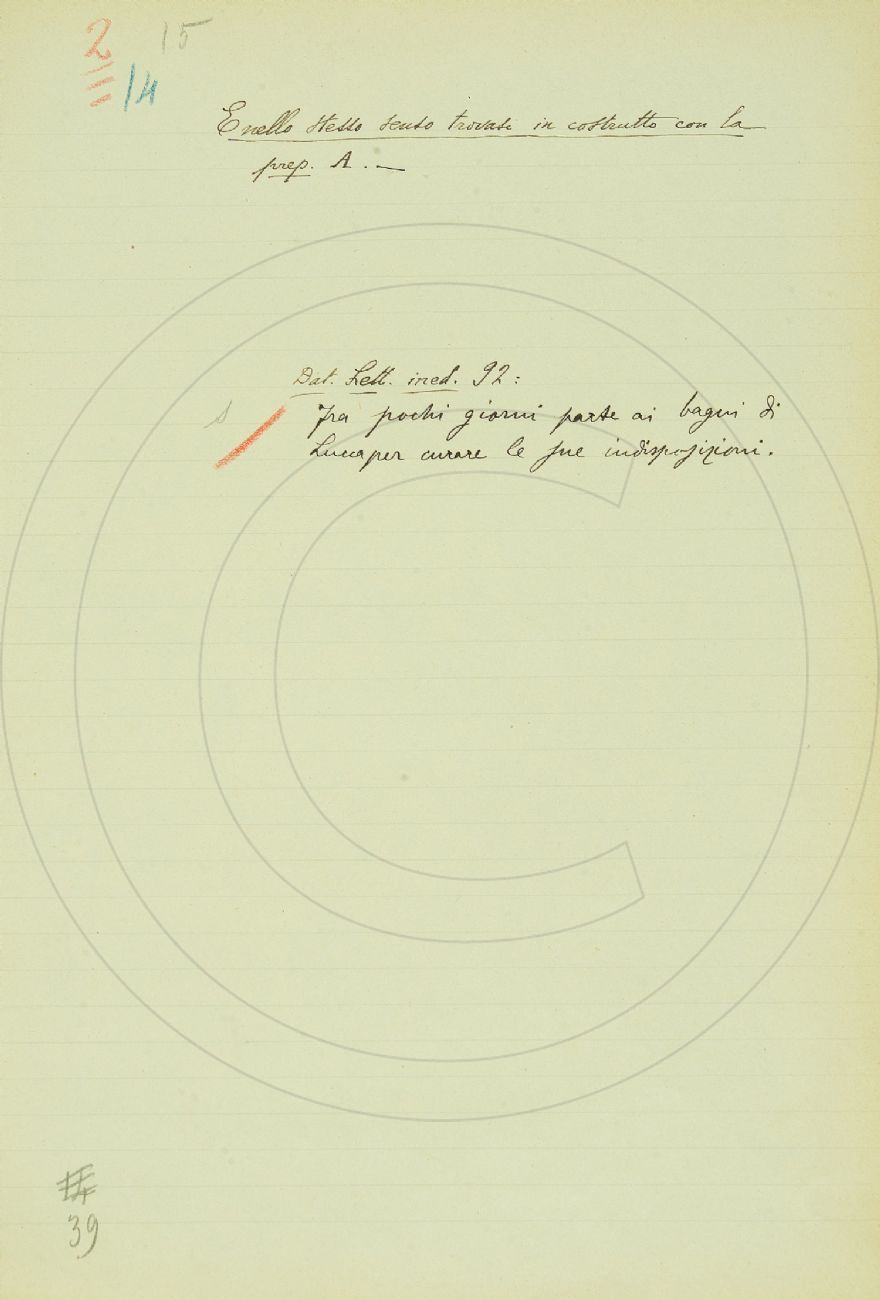 2 15
14
E nello stesso senso trovasi in costrutto con la
prep. A. —
Dat. Lett. ined. 92:
s
Fra pochi giorni parte ai bagni di
Lucca per curare le sue indisposizioni.
39